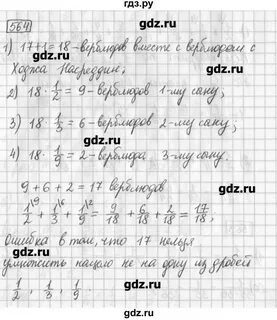 gdz.ru
564
1) 17+1=18-верблюдов вместе с верблюдом с
Ходжа Насреддин;
2) 18 · 1/2 = 9 - верблюдов 1-му сыну;
3) 18 · 1/3 = 6 - верблюдов 2-му сыну;
4) 18 · 1/9 = 2 - верблюда 3-му сыну.
9 + 6 + 2 = 17 верблюдов
1/2 + 1/3 + 1/9 = 9/18 + 6/18 + 2/18 = 17/18,
Ошибка в том, что 17 нельзя
умножить нацело не на одну из дробей
1/2, 1/3, 1/9.
gdz.ru